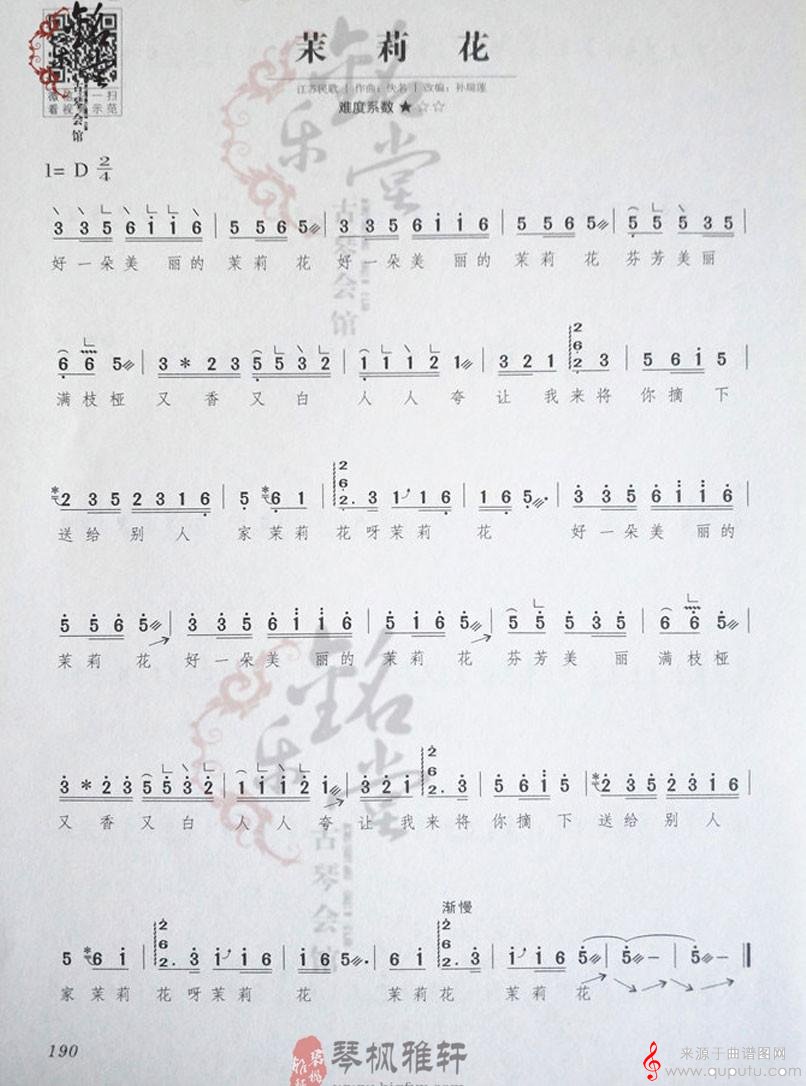 茉莉花
江苏民歌｜作曲：佚名｜改编：孙瑞莲
难度系数★☆☆
1= D 2/4
3 3 5 6 i i 6 | 5 5 6 5 | 3 3 5 6 i i 6 | 5 5 6 5 | 5 5 5 3 5 |
好一朵美 丽的 茉莉 花 好一朵美 丽的 茉莉 花 芬芳美丽
6 6 5 | 3 * 2 3 5 5 3 2 | 1 1 1 2 1 | 3 2 1 2 6 2. 3 | 5 6 i 5 |
满枝桠 又 香 又 白 人 人 夸 让 我来将 你 摘 下
2 3 5 2 3 1 6 | 5 6 1 | 2 6 2. 3 1 1 6 | 1 6 5. | 3 3 5 6 i i 6 |
送给 别 人 家 茉莉 花 呀茉莉 花 好一朵美 丽的
5 5 6 5 | 3 3 5 6 i i 6 | 5 i 6 5 | 5 5 5 3 5 | 6 6 5 |
茉莉 花 好一朵美 丽的 茉莉 花 芬芳美 丽 满枝桠
3 * 2 3 5 5 3 2 | i i i 2 i | 3 2 i 2 6 2. 3 | 5 6 i 5 | 2 3 5 2 3 1 6 |
又 香 又 白 人 人 夸 让 我来将 你 摘 下 送给 别 人
渐慢
5 6 i | 2 6 2. 3 i i 6 | i 6 5. | i 6 2 6 2. 3 | i i 6 5 | 5 – | 5 – ‖
家 茉莉 花 呀茉莉 花 茉莉 花 茉莉 花
190
琴枫雅轩
来源于曲谱图网
www.quputu.com
铭乐堂
古琴会馆